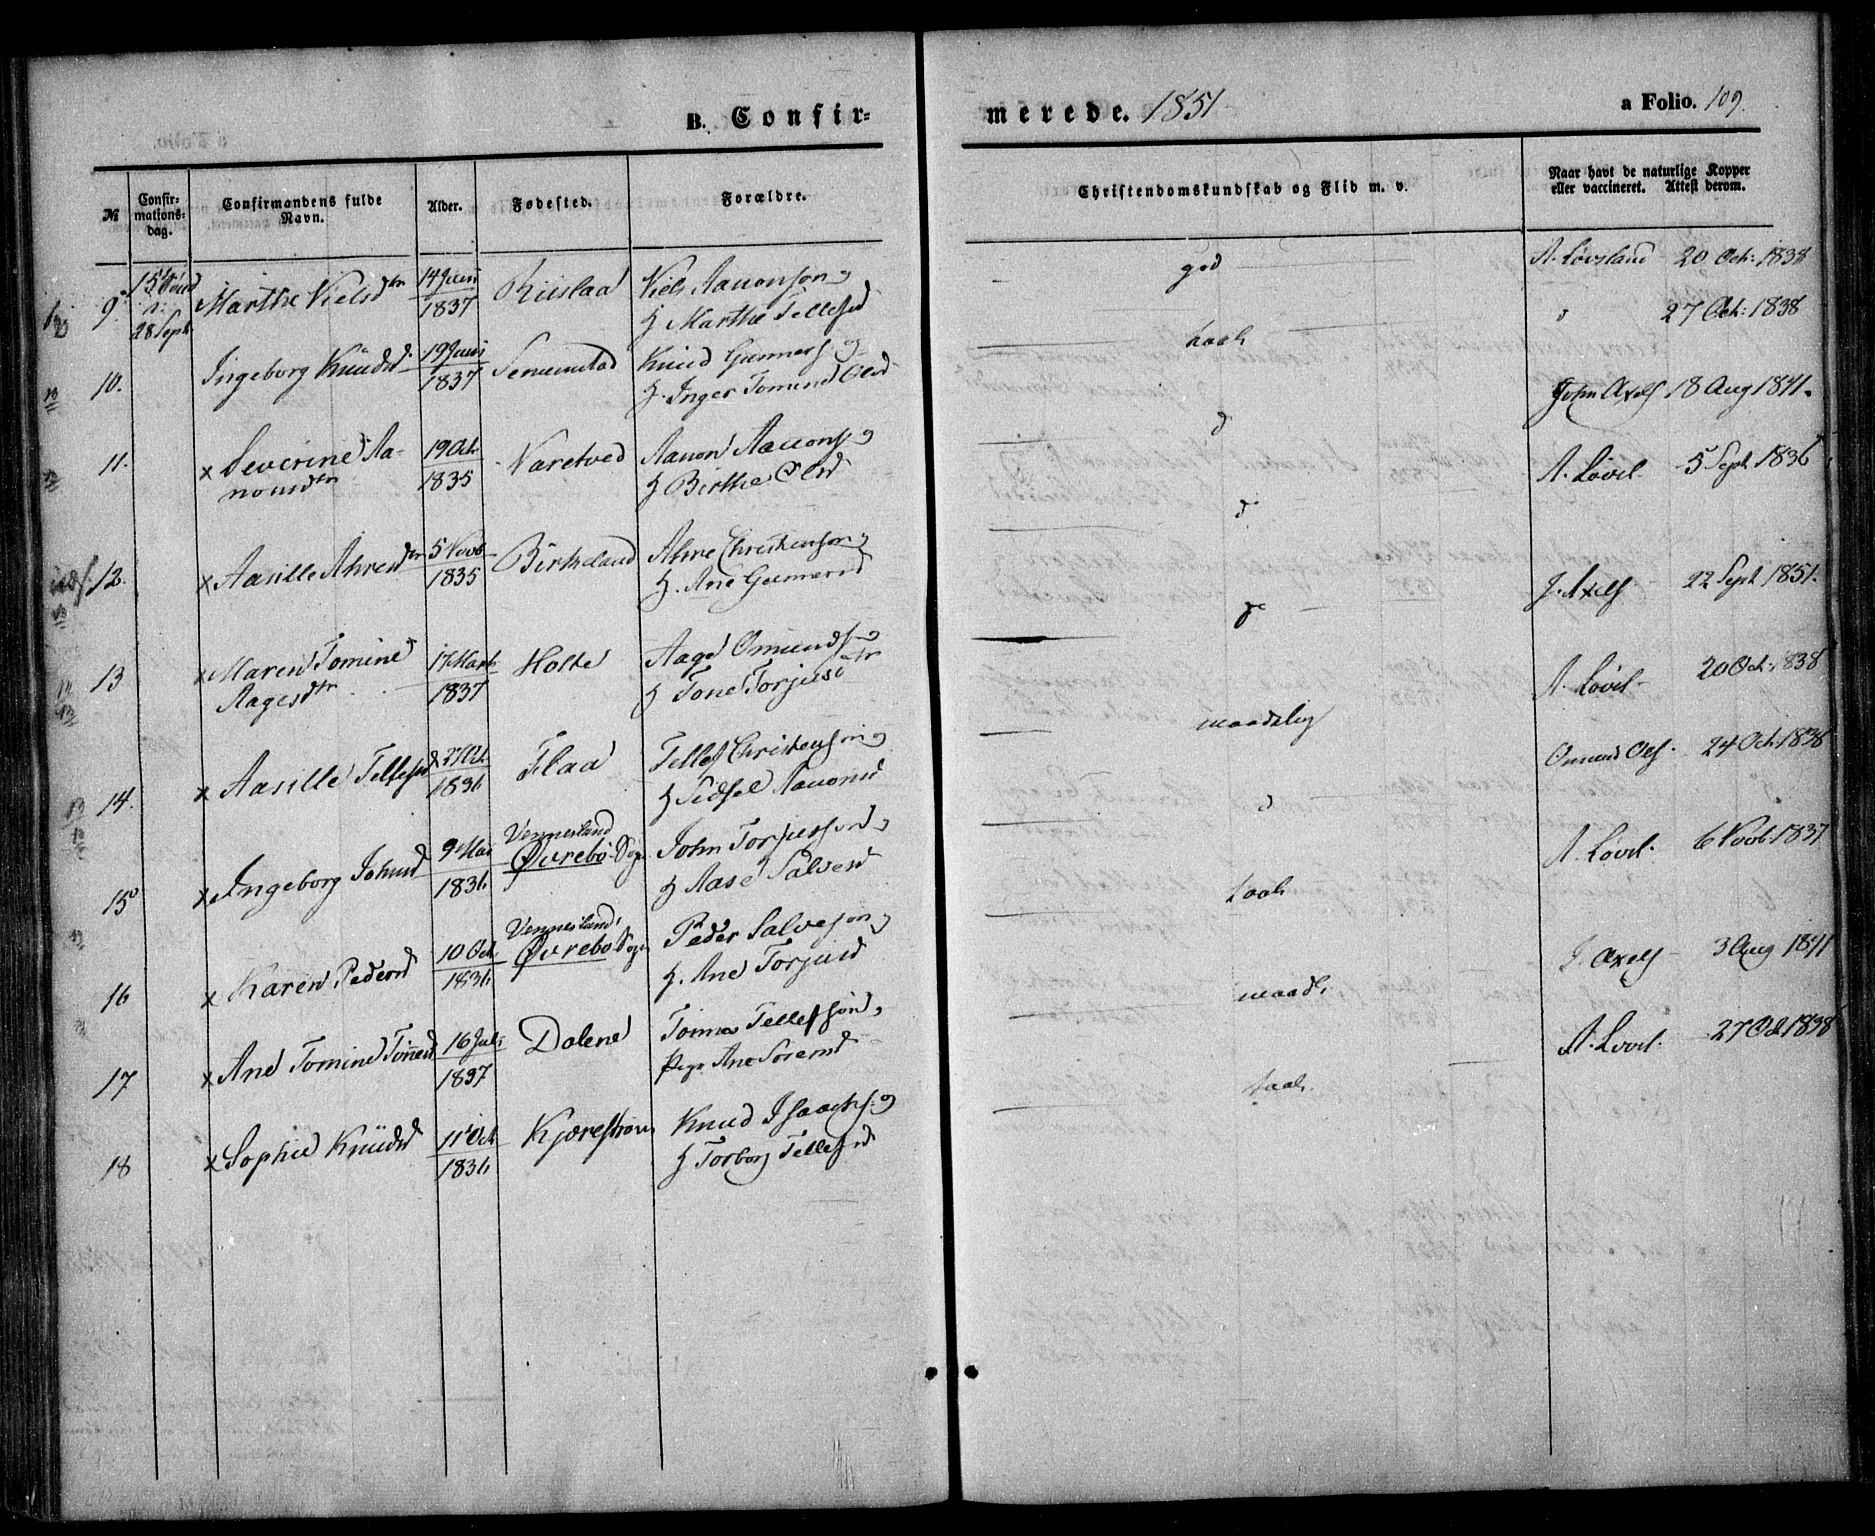 B. Confir-
merede. 1851
a Folio. 109.
№
Confir-
mations-
dag.
Confirmandens fulde
Navn.
Alder.
Fødested.
Forældre.
Christendomskundskab og Flid m. v.
Naar havt de naturlige Kopper
eller vaccineret. Attest derom.
9.
28 Sept
Marthe Nielsdtr
14 Juni
1837
Riislaa
Niels Aanonsøn og
H Marthe Tellefsd
god
A. Løvsland 20 Oct: 1838
10.
Ingeborg Knudsd.
19 Juni
1837
Senumstad
Knud Gunners og
H. Inger Tomine Olsd
taal
d 27 Oct: 1838
11.
x Severine Aa-
nonsdtr
19 Oct.
1835
Varetved
Aanon Aanons og
H Birthe Olsd
d
John Axels 18 Aug 1841.
12.
x Aasille Ahresdtr
5 Novb
1835
Birkeland
Ahre Christensøn og
H. Ane Gunnersd
d
A. Løvsl. 5 Sept 1836
13
x Maren Tomine
Aagesdtr
17 Marts
1837
Holte
Aage Omunds og
H Tone Torjusdtr
d
J. Axels 22 Sept 1851.
14.
x Aasille Tellefsd
27 Oct.
1836
Flaa
Tellef Christensøn og
H Sidsel Aanonsd
maadelig
A. Løvsl. 20 Oct. 1838
15
x Ingeborg Johnsd
9 Mai
1836
Vennesland
Øvrebø Sogn
John Torjussøn og
H Aase Salvesd
d
Omund Ols. 24 Oct. 1838
16
x Karen Pedersd
10 Oct.
1836
Vennesland
Øvrebø Sogn
Peder Salvesøn og
H. Ane Torjusd
taal
A. Løvsl. 6 Novb. 1837
17
x Ane Tomine Tønnesd
16 Juli
1837
Dalene
Tønnes Tellefsøn og
Pige Ane Sørensd
maadl.
J. Axels 3 Aug 1841
18
x Sophie Knudsd
11 Oct.
1836
Kjærestrøm
Knud Isaachs. og
H Torborg Tellefsd
taal.
A. Løvsl. 27 Oct 1838